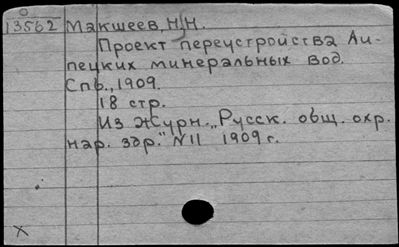 13562 Макшеев, Н.Н.
Проект переустройства Ли-
пецких минеральных вод.
Спб., 1909.
18 стр.
Из журн. „Русск. общ. охр.
нар. здр." №11 1909 г.
X